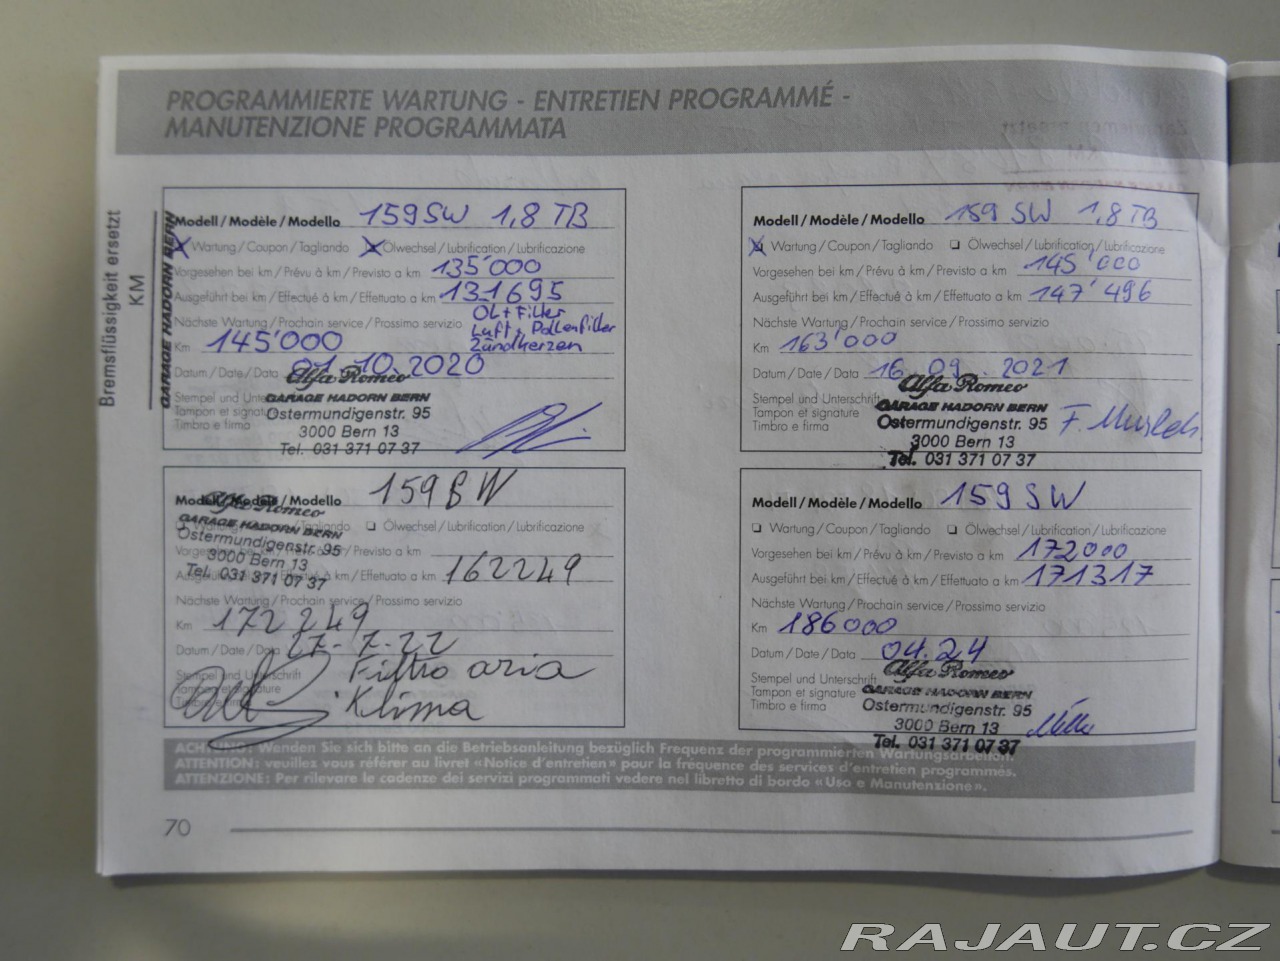 PROGRAMMIERTE WARTUNG - ENTRETIEN PROGRAMMÉ -
MANUTENZIONE PROGRAMMATA
Bremsflüssigkeit ersetzt
KM
GARAGE HADORN BERN
Modell / Modèle / Modello 159 SW 1,8 TB
Wartung / Coupon / Tagliando Ölwechsel / Lubrification / Lubrificazione
Vorgesehen bei km / Prévu à km / Previsto a km 135'000
Ausgeführt bei km / Effectué à km / Effettuato a km 131695
Nächste Wartung / Prochain service / Prossimo servizio
Öl + Filter
Luft + Pollenfilter
Zündkerzen
Km 145'000
Datum / Date / Data 01. 10. 2020
Alfa Romeo
Stempel und Unte
GARAGE HADORN BERN
Tampon et signatu
Ostermundigenstr. 95
Timbro e firma
3000 Bern 13
Tel. 031 371 07 37
Modell / Modèle / Modello 159 SW 1,8 TB
Wartung / Coupon / Tagliando Ölwechsel / Lubrification / Lubrificazione
Vorgesehen bei km / Prévu à km / Previsto a km 145'000
Ausgeführt bei km / Effectué à km / Effettuato a km 147'496
Nächste Wartung / Prochain service / Prossimo servizio
Km 163'000
Datum / Date / Data 16. 09. 2021
Alfa Romeo
Stempel und Unterschrift
GARAGE HADORN BERN
Tampon et signature
Ostermundigenstr. 95
Timbro e firma
3000 Bern 13
Tel. 031 371 07 37
Modell / Modèle / Modello 159 SW
Alfa Romeo
GARAGE HADORN BERN
Tagliando Ölwechsel / Lubrification / Lubrificazione
Ostermundigenstr. 95
Vorgesehen bei km / Prévu à km / Previsto a km
3000 Bern 13
Ausgeführt bei km / Effectué à km / Effettuato a km 162249
Tel. 031 371 07 37
Nächste Wartung / Prochain service / Prossimo servizio
Km 172249
Datum / Date / Data 27-7-22
Stempel und Unterschrift Filtro aria
Tampon et signature
Klima
Timbro e firma
Modell / Modèle / Modello 159 SW
Wartung / Coupon / Tagliando Ölwechsel / Lubrification / Lubrificazione
Vorgesehen bei km / Prévu à km / Previsto a km 172000
Ausgeführt bei km / Effectué à km / Effettuato a km 171317
Nächste Wartung / Prochain service / Prossimo servizio
Km 186000
Datum / Date / Data 04.24
Alfa Romeo
Stempel und Unterschrift
GARAGE HADORN BERN
Tampon et signature
Ostermundigenstr. 95
Timbro e firma
3000 Bern 13
Tel. 031 371 07 37
ACHTUNG: Wenden Sie sich bitte an die Betriebsanleitung bezüglich Frequenz der programmierten Wartungsarbeiten.
ATTENTION: veuillez vous référer au livret «Notice d'entretien» pour la fréquence des services d'entretien programmés.
ATTENZIONE: Per rilevare le cadenze dei servizi programmati vedere nel libretto di bordo «Uso e Manutenzione».
70
RAJAUT.CZ